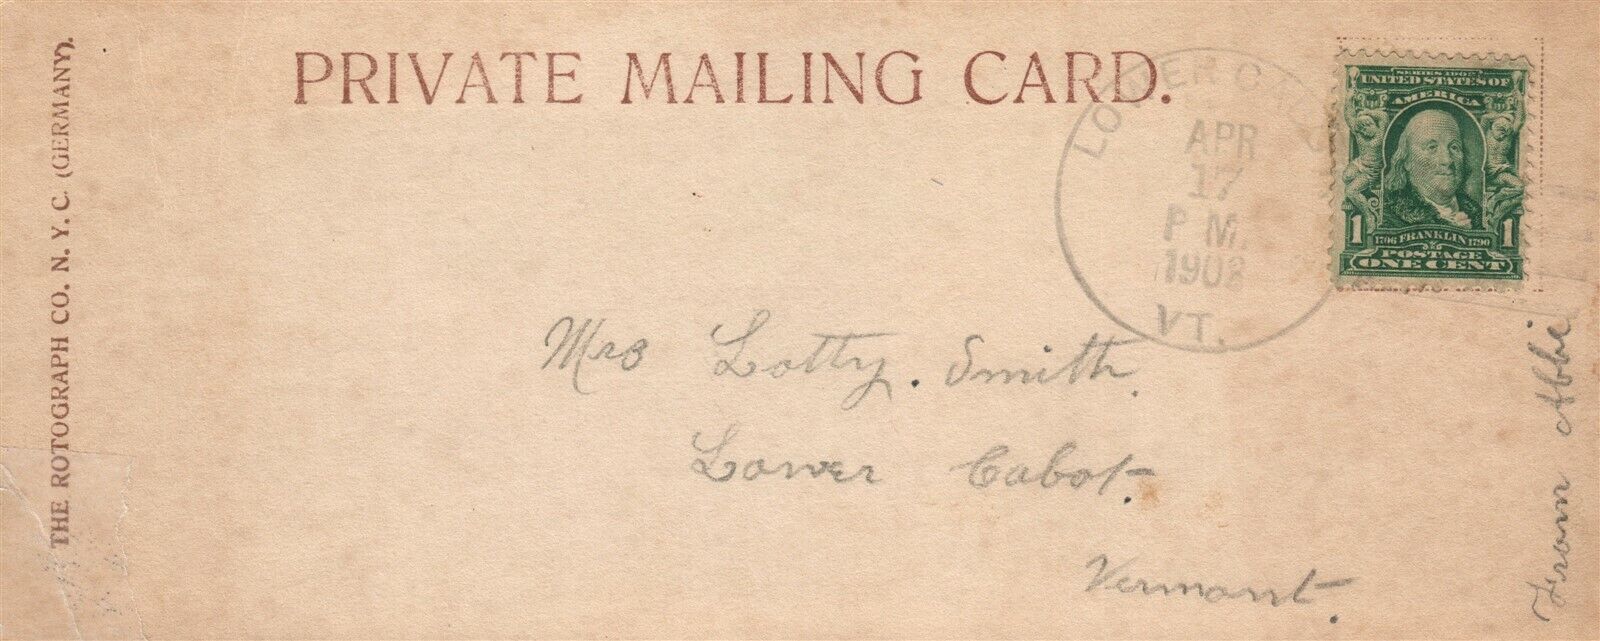 PRIVATE MAILING CARD.
THE ROTOGRAPH CO. N. Y. C. (GERMANY).
LOWER
APR
17
P M.
1908
VT.
SERIES 1902
UNITED STATES OF
AMERICA
1 1
1706 FRANKLIN 1790
POSTAGE
ONE CENT
Mrs Lotty. Smith.
Lower Cabot.
Vermont.
From Abbie